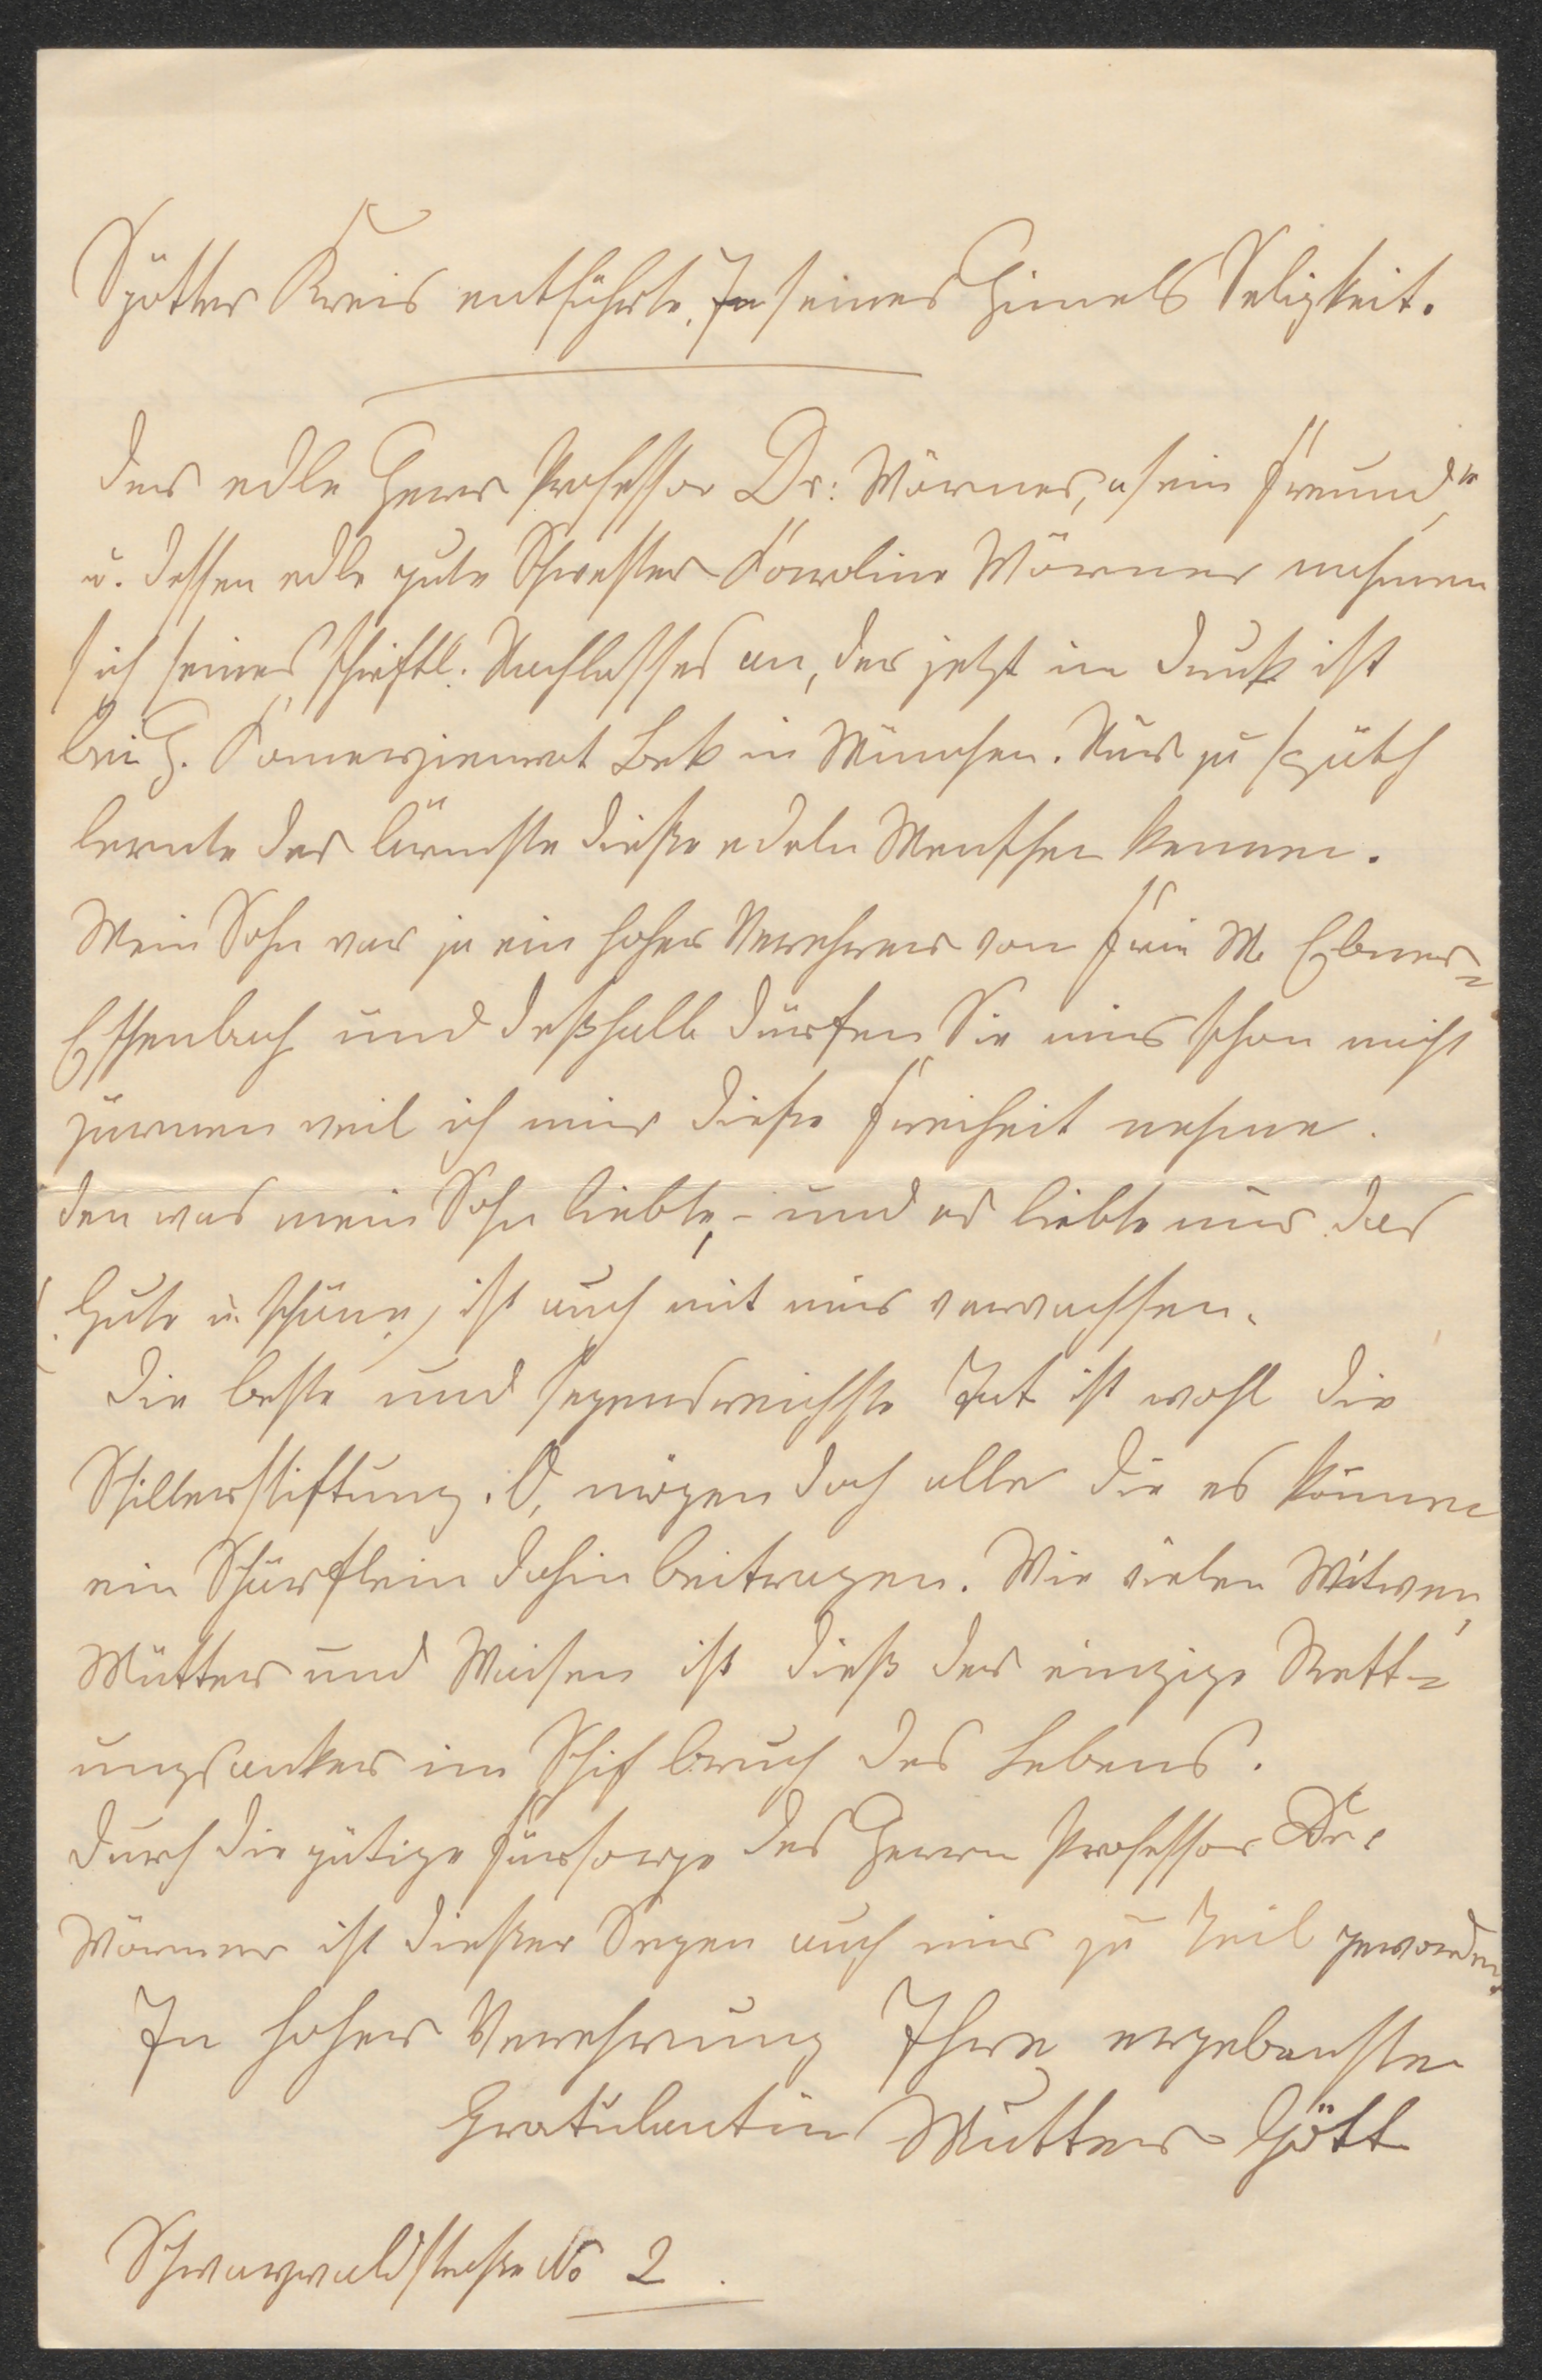 Spötter Kreis entführte, In seines Himels Seligkeit.
Der edle Herr Professor Dr: Wörner, „sein Freund“
u. dessen edle gute Schwester Karoline Wörner nahmen
sich seines schriftl. Nachlasses an, der jetzt im Druck ist
bei H. Komerzienrat Bek in München. Nur zu späth
lernte der Ärmste diese edeln Menschen kennen.
Mein Sohn war ja ein hoher Verehrer von Frau M. Ebner=
Eschenbach und deßhalb dürfen Sie mir schon nicht
zürnen weil ich mir diese Freiheit nehme.
den was mein Sohn liebte, – und er liebte nur das
Gute u. schöne, ist auch mit mir verwachsen.
Die beste und segensreichste Tat ist wohl die
Schillerstiftung. O, mögen doch alle die es können
ein Schärflein dahin beitragen. Wie vielen Witwen,
Mütter und Waisen ist dieß der einzige Rett=
ungsanker im Schifbruch des Lebens.
Durch die gütige Fürsorge des Herrn Professor Dr.
Wörner ist dieser Segen auch mir zu Teil geworden.
In hoher Verehrung Ihre ergebenste
Gratulantin Mutter Gött
Schwarzwaldstraße No 2.